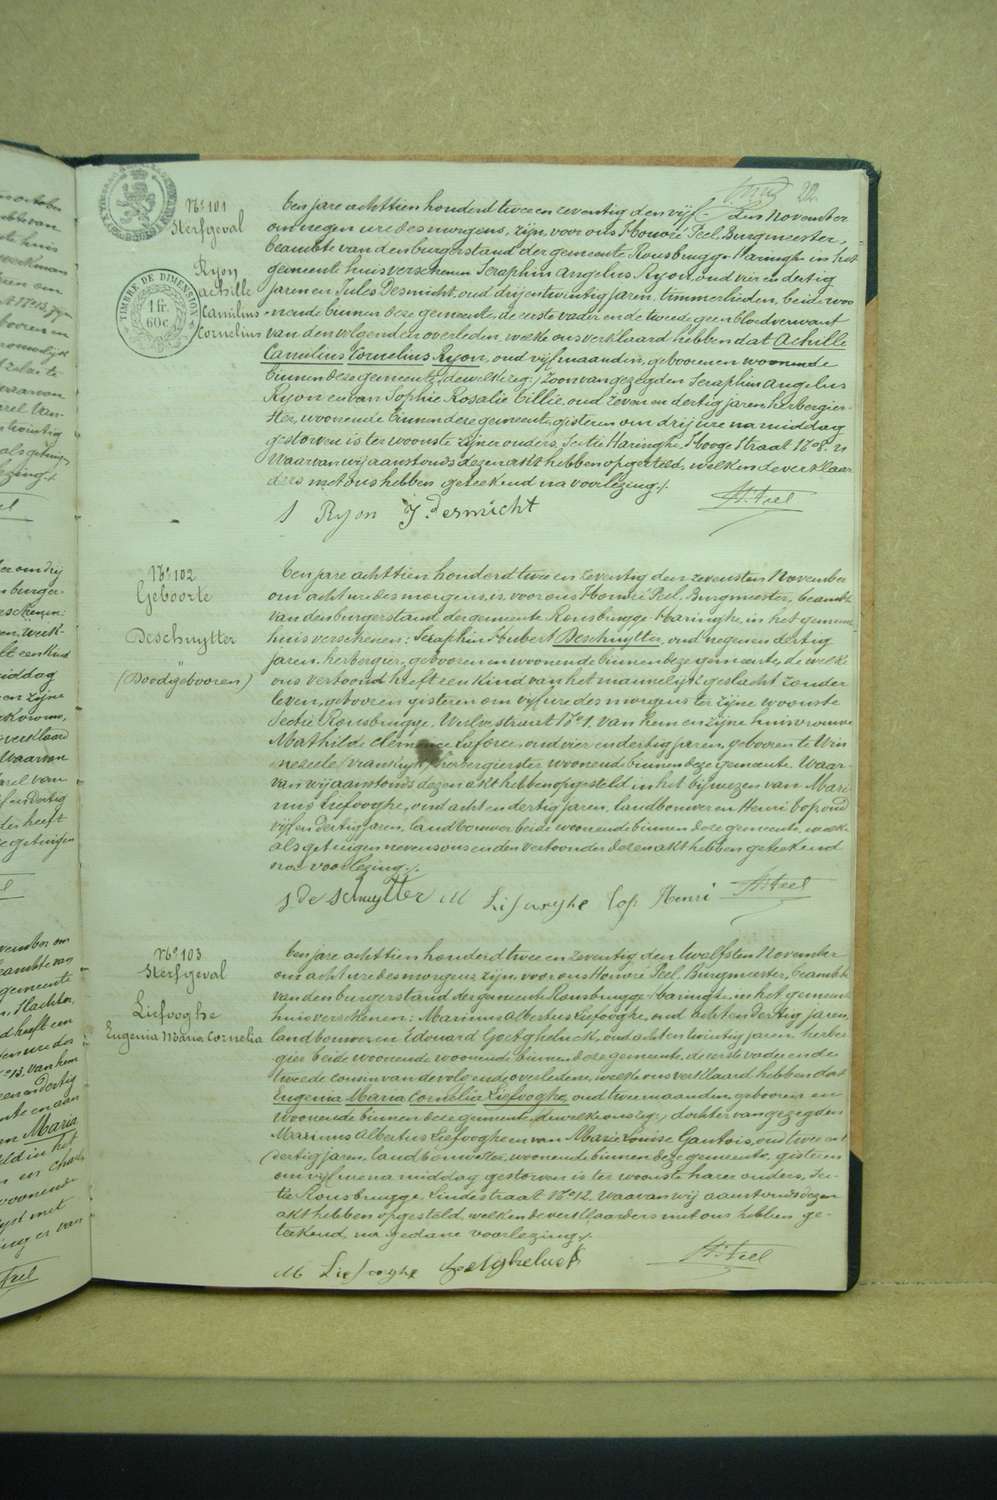 22.
TIMBRE DE DIMENSION
1 fr.
60 c.
No. 101
Sterfgeval
Ryon
Achille
Camilius
Cornelius
Ten jare achttien honderd twee en zeventig den vijf- den November
om negen ure des morgens, zijn, voor ons Honoré Peel, Burgmeester,
beambte van den burgerstand der gemeente Rousbrugge-Haringhe in het
gemeentehuis verschenen Seraphin Angelus Ryon, oud vier en dertig
jaren en Jules Desmicht, oud drij en twintig jaren, timmerlieden, beide woo
nende binnen deze gemeente, de eerste vader en de tweede geen bloedverwant
van den volgenden overleden, welke ons verklaard hebben dat Achille
Camilius Cornelius Ryon, oud vijf maanden, geboren en woonende
binnen deze gemeente, (dewelke zeg:) zoon van gezegden Seraphin Angelus
Ryon en van Sophie Rosalie Tillie, oud zeven en dertig jaren, herbergier-
ster, woonende binnen deze gemeente, gisteren om drij ure na middag
gestorven is ter woonste zijner ouders, Sectie Haringhe, Hooge Straat No. 8.
Waarvan wij aanstonds dezen akt hebben opgesteld, welken de verklaar
ders met ons hebben geteekend na voorlezing./.
S Ryon J. Desmicht H. Peel
No. 102
Geboorte
Deschuytter
"
(Doodgebooren)
Ten jare achttien honderd twee en zeventig den zevensten November
om acht ure des morgens, is, voor ons Honoré Peel, Burgmeester, beambte
van den burgerstand der gemeente Rousbrugge-Haringhe, in het gemeente
huis verschenen: Seraphin Hubert Deschuytter, oud negen en dertig
jaren, herbergier, gebooren en woonende binnen deze gemeente, de welke
ons vertoond heeft een kind van het mannelijk geslacht zonder
leven, gebooren gisteren om vijf ure des morgens ter zijne woonste
Sectie Rousbrugge, Wulvestraat No. 1. van hem en zijne huisvrouwe
Mathilde Clemence Laforce, oud vier en dertig jaren, gebooren te Win
nezeele (Frankrijk), herbergierster woonende binnen deze gemeente. Waar-
van wij aanstonds dezen akt hebben opgesteld in het bijwezen van Mari
nus Liefooghe, oud acht en dertig jaren, landbouwer en Henri Top, oud
vijf en dertig jaren, landbouwer beide woonende binnen deze gemeente, welke
als getuigen nevens ons en den vertoonder dezen akt hebben geteekend
na voorlezing./.
S De Schuytter M Liefooghe Top Henri H. Peel
No. 103
Sterfgeval
Liefooghe
Eugenia Maria Cornelia
Ten jare achttien honderd twee en zeventig den twalfsten November
om acht ure des morgens zijn, voor ons Honoré Peel, Burgmeester, beambte
van den burgerstand der gemeente Rousbrugge-Haringhe, in het gemeente
huis verschenen: Marinus Albertus Liefooghe, oud acht en dertig jaren,
landbouwer en Edouard Goetghelueck, oud acht en twintig jaren, herber
gier beide woonende woonende binnen deze gemeente, de eerste vader en de
tweede cousin van de volgende overledene, welke ons verklaard hebben dat
Eugenia Maria Cornelia Liefooghe, oud twee maanden, geboren en
woonende binnen deze gemeente dewelke ons zeg:) dochter van gezegden
Marinus Albertus Liefooghe en van Marie Louise Gantois, oud twee en
dertig jaren, landbouwster, woonende binnen deze gemeente, gisteren
om vijf ure na middag gestorven is ter woonste harer ouders, Sec-
tie Rousbrugge, Lindestraat No. 12. Waarvan wij aanstonds dezen
akt hebben opgesteld, welken de verklaarders met ons hebben ge-
teekend, na gedane voorlezing./.
M Liefooghe Goetghelueck H. Peel